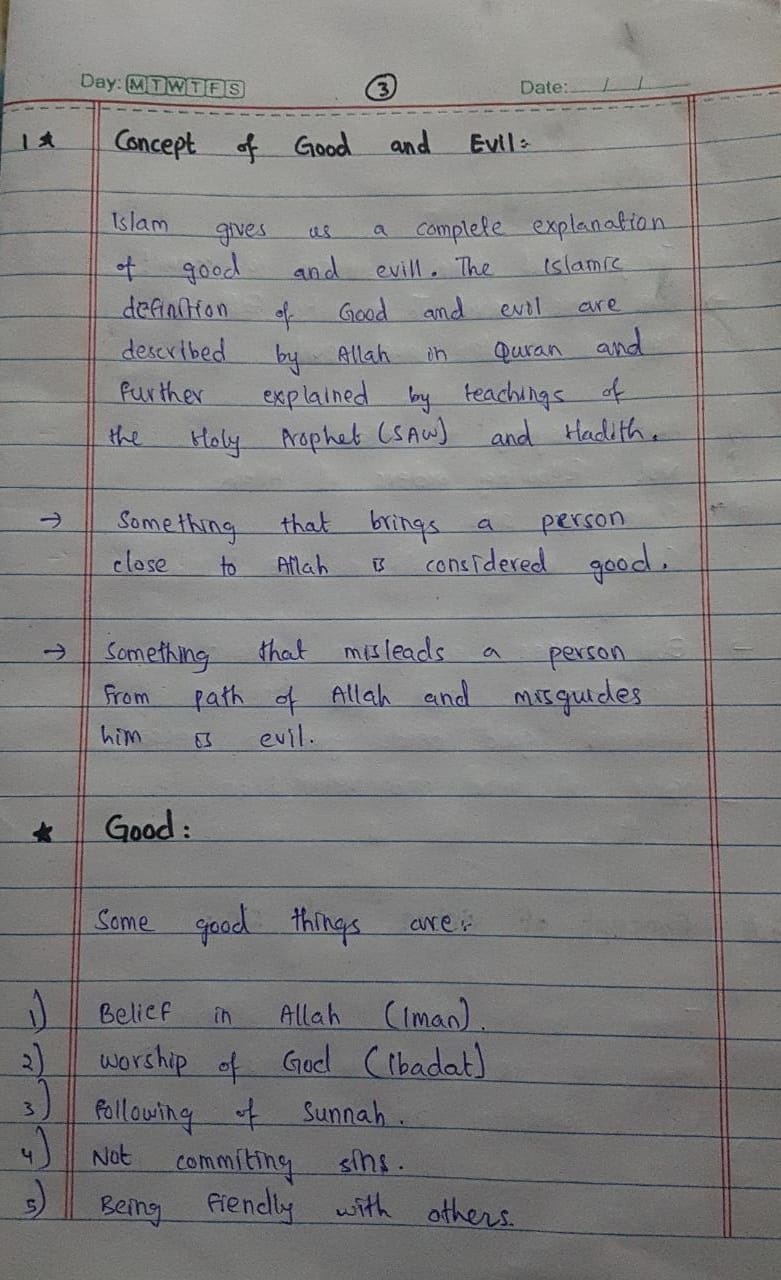 Day: M T W T F S
3
Date: / /
1 ★ Concept of Good and Evil:
Islam gives us a complete explanation
of good and evill. The Islamic
definition of Good and evil are
described by Allah in Quran and
further explained by teachings of
the Holy Prophet (SAW) and Hadith.
→ Something that brings a person
close to Allah is considered good.
→ Something that misleads a person
from path of Allah and misguides
him is evil.
★ Good:
Some good things are:
1) Belief in Allah (Iman).
2) worship of God (Ibadat)
3) Following of Sunnah.
4) Not commiting sins.
5) Being fiendly with others.